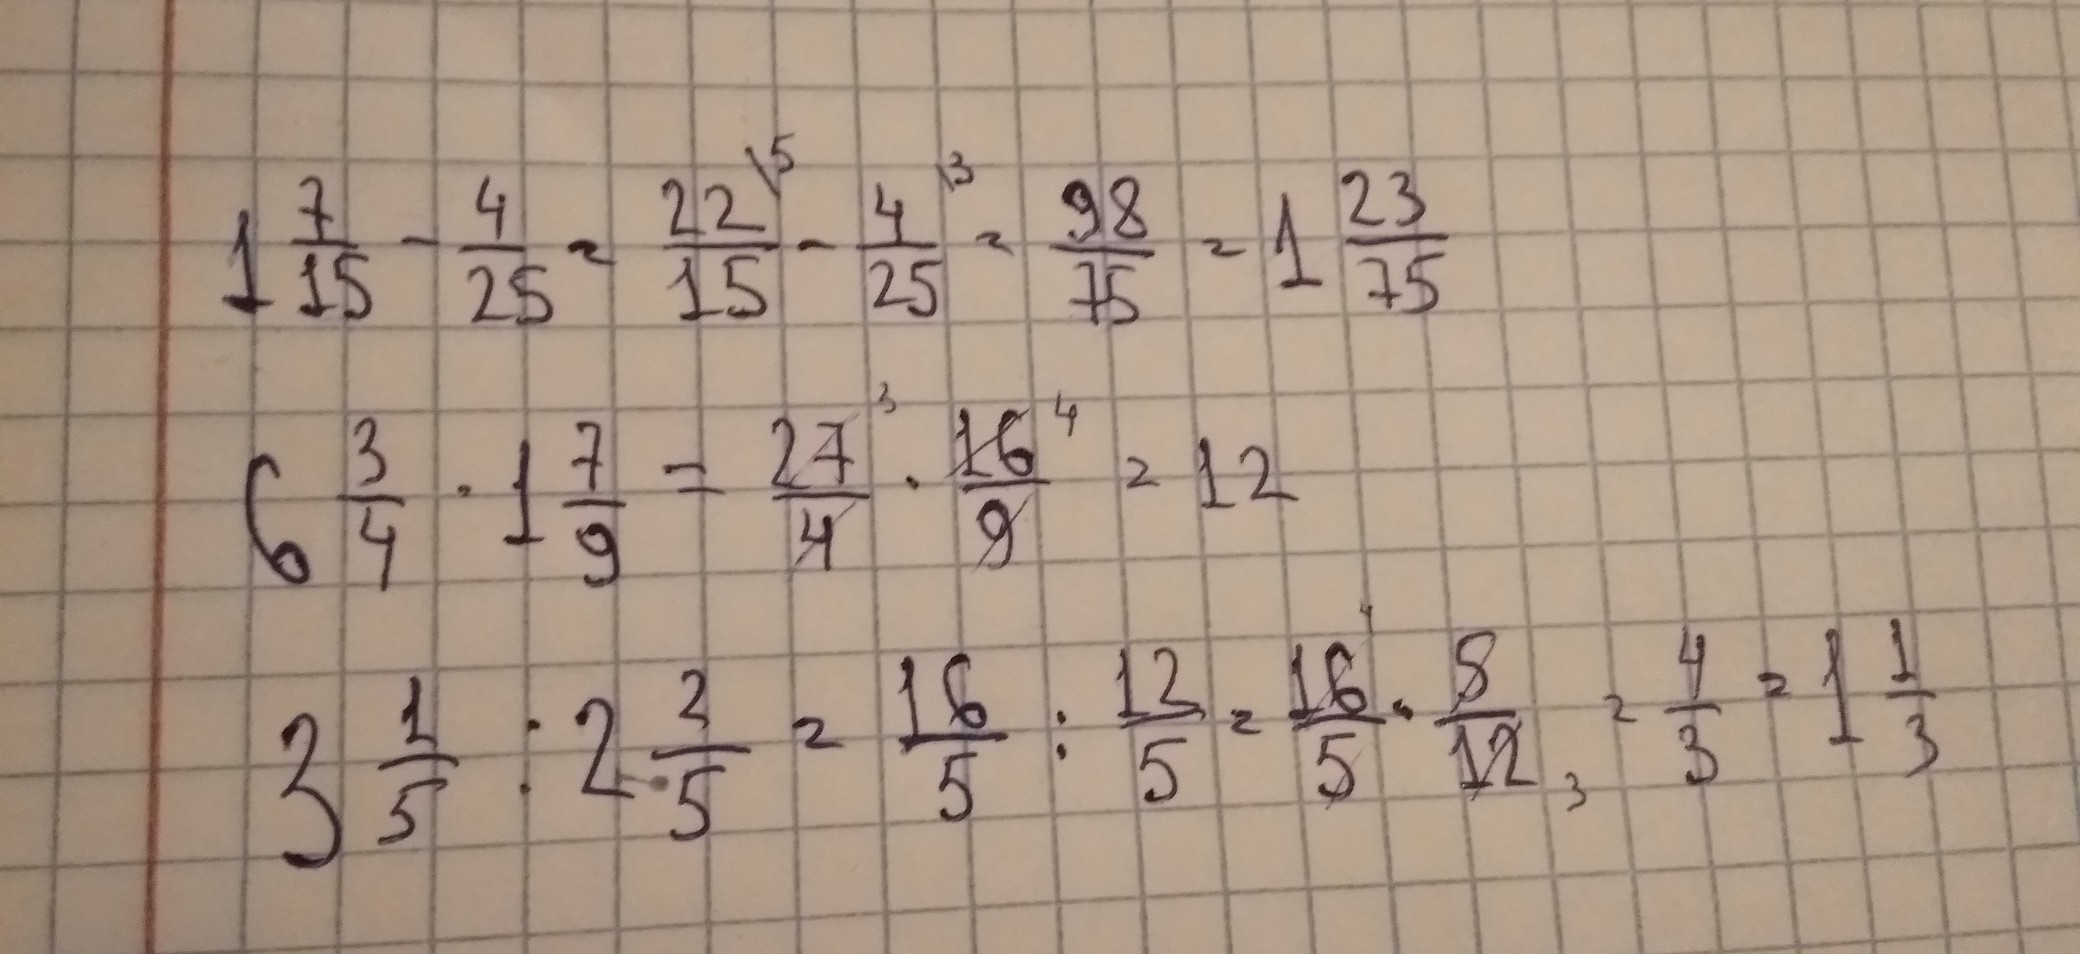 1 7/15 - 4/25 = 22/15 \5 - 4/25 \3 = 98/75 = 1 23/75
6 3/4 · 1 7/9 = 27/4 3 · 16/9 4 = 12
3 1/5 : 2 2/5 = 16/5 : 12/5 = 16/5 4 · 5/12 3 = 4/3 = 1 1/3